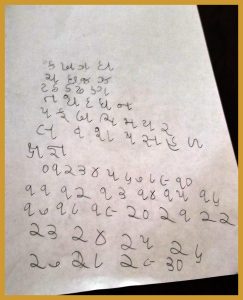 ક ખ ગ ઘ
ચ છ જ ઝ
ટ ઠ ડ ઢ ણ
ત થ દ ધ ન
પ ફ બ ભ મ ય ર
લ વ શ ષ સ હ ળ
ક્ષ જ્ઞ
૦ ૧ ૨ ૩ ૪ ૫ ૬ ૭ ૮ ૯ ૧૦
૧૧ ૧૨ ૧૩ ૧૪ ૧૫ ૧૬
૧૭ ૧૮ ૧૯ ૨૦ ૨૧ ૨૨
૨૩ ૨૪ ૨૫ ૨૬
૨૭ ૨૮ ૨૯ ૩૦